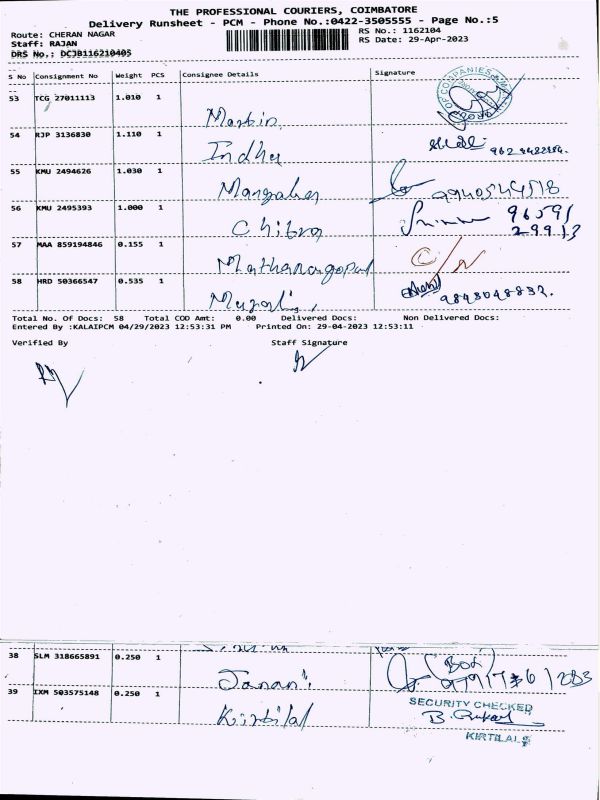 THE PROFESSIONAL COURIERS, COIMBATORE
Delivery Runsheet - PCM - Phone No.:0422-3505555 - Page No.:5
Route: CHERAN NAGAR RS No.: 1162104
Staff: RAJAN RS Date: 29-Apr-2023
DRS No.: DCJB116210405
S No Consignment No Weight PCS Consignee Details Signature
53 TCG 27011113 1.010 1 Martin
54 RJP 3136830 1.110 1 Indhu
55 KMU 2494626 1.030 1 9940544518
56 KMU 2495393 1.000 1 Chitra 96591
29913
57 MAA 859194846 0.155 1 Mathanagopal C/N
58 HRD 50366547 0.535 1 9843048832.
Total No. Of Docs: 58 Total COD Amt: 0.00 Delivered Docs: Non Delivered Docs:
Entered By :KALAIPCM 04/29/2023 12:53:31 PM Printed On: 29-04-2023 12:53:11
Verified By Staff Signature
38 SLM 318665891 0.250 1 Janani
39 IXM 503575148 0.250 1 Kirtilal SECURITY CHECKED
KIRTILALS